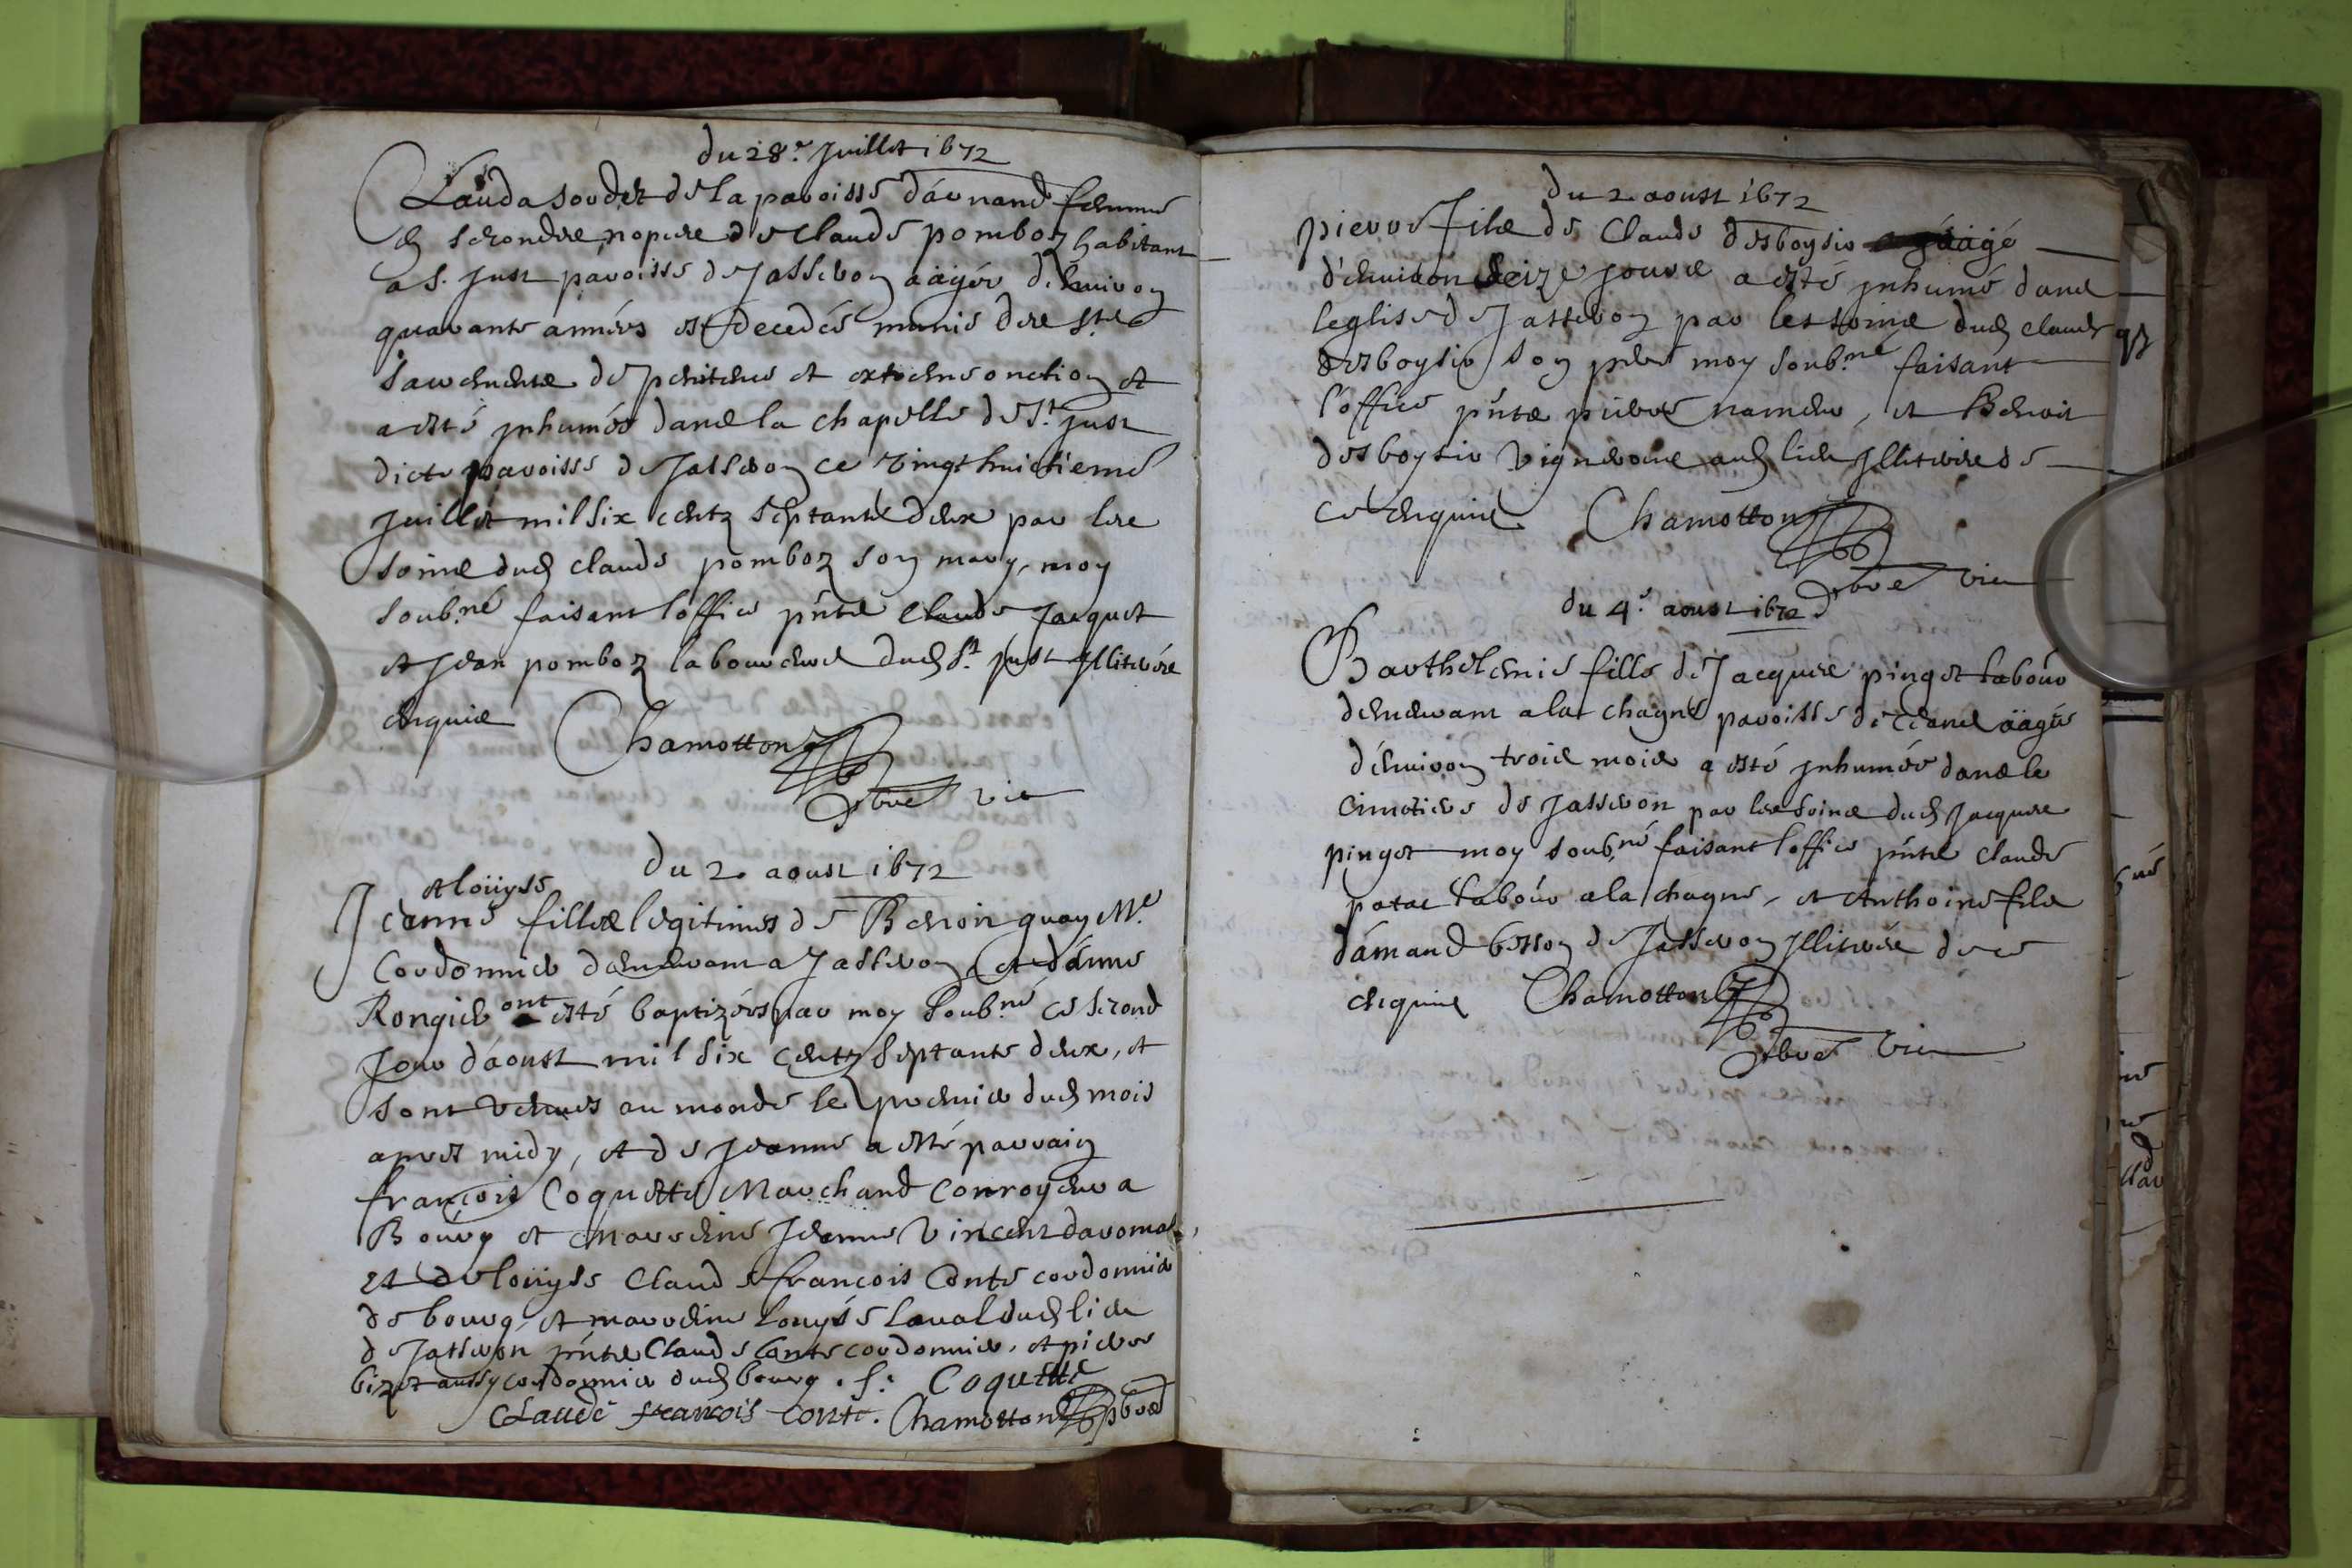 du 28.e Juillet 1672
Clauda soudet de la paroisse d'aurnand femme
en secondes nopces de Claude pomboz habitant
a S. Just paroisse de Jasseron aagée d'environ
quarante années est decedée munie des Stes
Sacremens de penitence et extreme onction et
a esté inhumée dans la chapelle de St. Just
dicte paroisse de Jasseron ce vingt huictieme
Juillet mil six centz septante deux par les
soins dud claude pomboz son mary, moy
soub.né faisant loffice pñts Claude Jacquet
et Jean pomboz laboureurs dud St. Just Illiterés
enquis Chamotton
pbre vic
du 2. aoust 1672
et loüyse
Jeanne filles legitimes de Benoin quay Me.
Cordonnier demeurant a Jasseron et d'anne
Rongier ont esté baptizées par moy soub.né ce second
Jour d'aoust mil six centz septante deux, et
sont venues au monde le premier dud mois
apres midy, et de Jeanne a esté parrain
françois Coquette Marchand Conroyeur a
Bourg et marreine Jeanne Vincent daromas,
et de loüyse Claude françois Conte cordonnier
de bourg, et marreine Louyse Laval dud lieu
de Jasseron pñts Claude Conte cordonnier, et pierre
bizet aussy cordonnier dud bourg. f: Coquette
Claude francois Conte. Chamotton pbre
du 2 aoust 1672
pierre fils de Claude desboysir aagé
d'environ seize jours a esté inhumé dans
leglise de Jasseron par les soins dud claude
desboysir son pere moy soub.né faisant
l'office pñts pierre namein, et Benoit
desboysir vignerons aud lieu Illiterés de
ce enquis Chamotton
pbre vic
du 4.e aoust 1672
Barthelemie fille de Jacques pinget labour
demeurant a la chagne parroisse de Ceand aagée
d'environ trois mois a esté inhumée dans le
cimetiere de Jasseron par les soins dud Jacques
pinget moy soub.né faisant loffice pñts Claude
patac labour a la chagne, et Anthoine fils
d'amand besson de Jasseron Illiterés de ce
enquis Chamotton
pbre vic